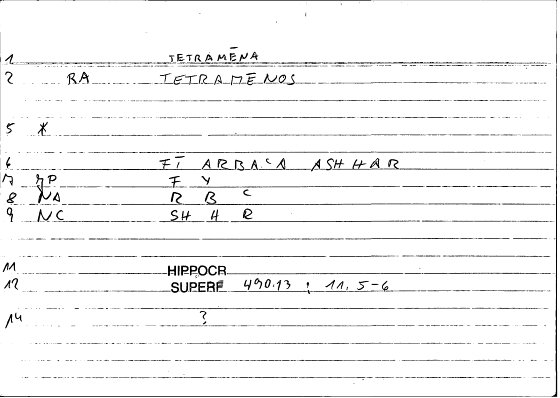 1 TETRAMĒNA
2 RA TETRAMĒNOS
5 *
6 FĪ ARBAʿA ASHHAR
7 JP F Y
8 NA R B ʿ
9 NC SH H R
11 HIPPOCR
12 SUPERF 490.13 ; 11.5-6
14 ?